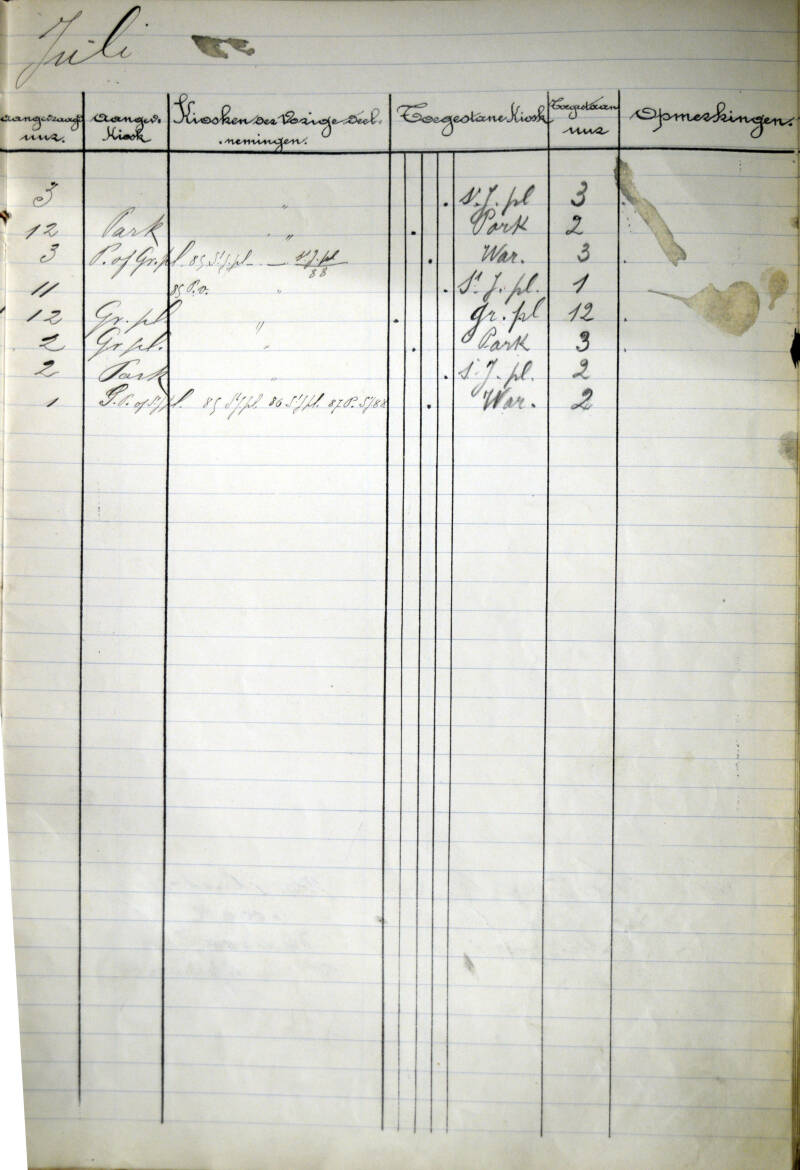 Juli
Aangevraagd uur. Aangev. Kiosk Kiosken der Vorige Deel-nemingen. Toegestane Kiosk Toegestaan uur Opmerkingen.
3 " . St. J. pl 3 .
12 Park " . Park 2
3 P. of Gr. pl. 85 St J. pl. — St J. pl 88 . War. 3 .
11 85 P. v. " . St J. pl. 1
12 Gr. pl " . gr. pl 12 .
2 Gr. pl. " . Park 3 .
2 Park " . St. J. pl. 2
1 P. of St J pl. 85 St J pl. 86 St J pl. 87 P. St J 88 . War. 2